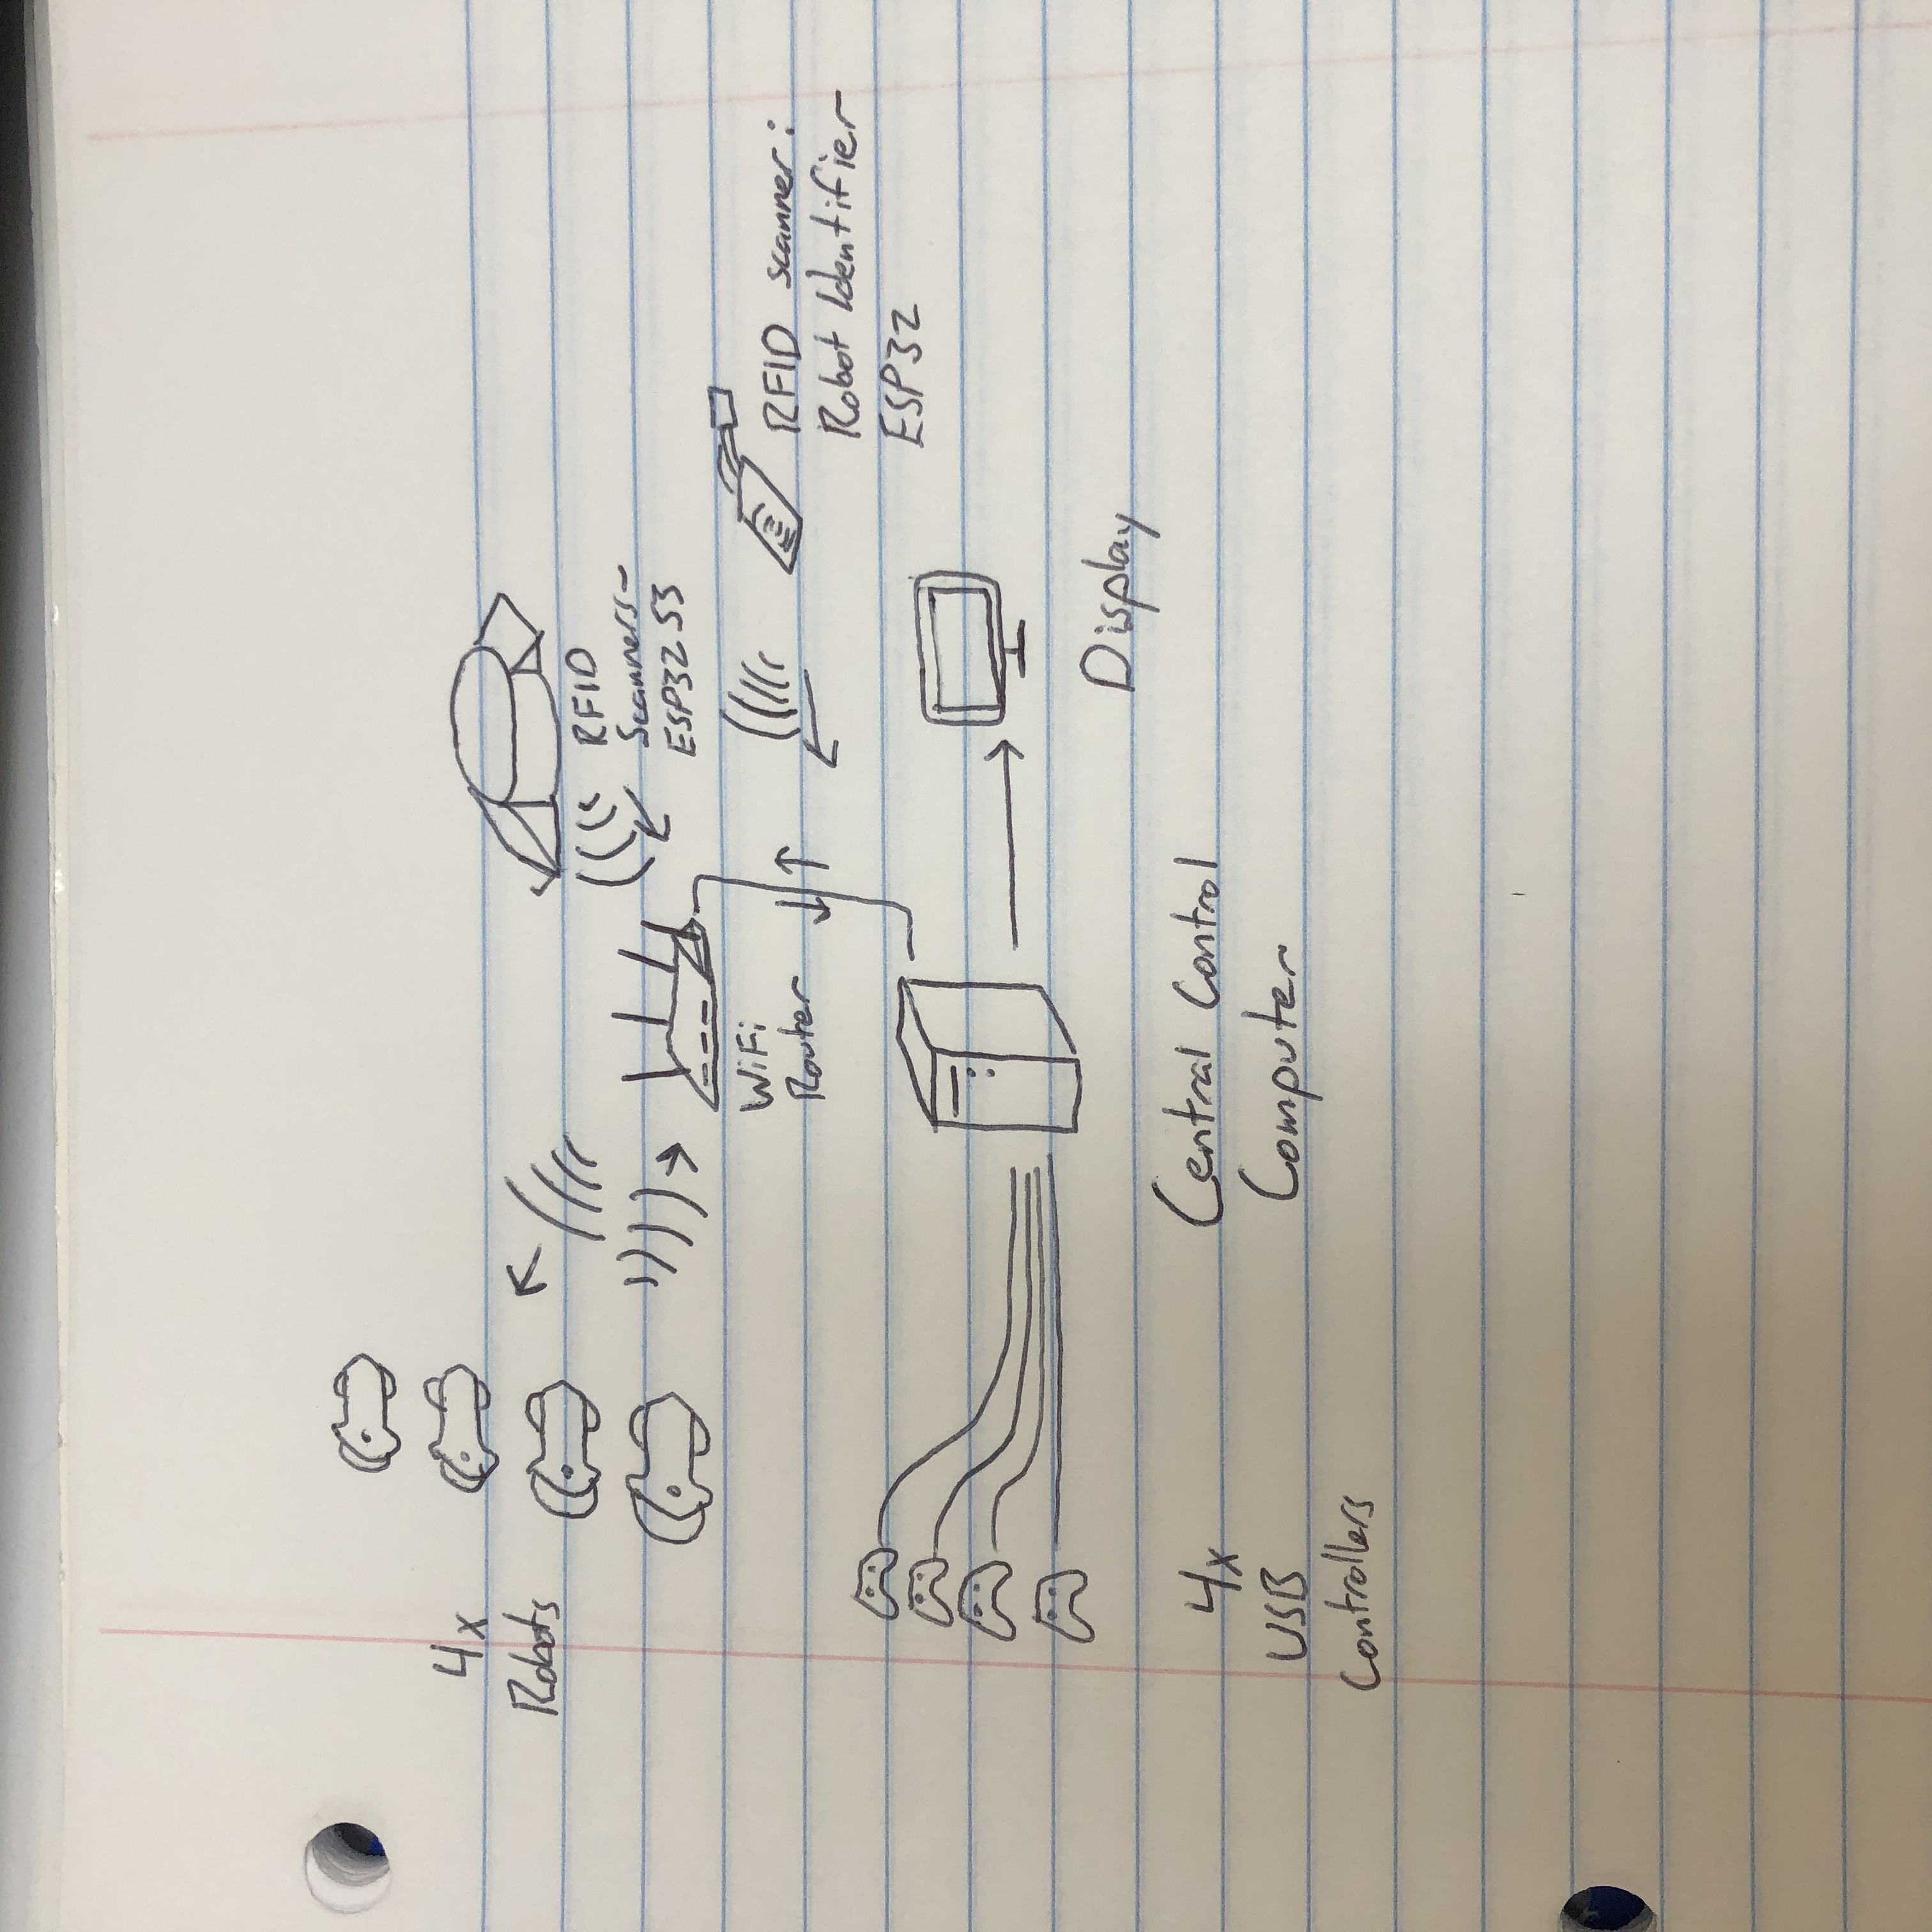 4x
Robots
RFID
Scanners-
ESP32 S3
WiFi
Router
RFID scanner:
Robot Identifier
ESP32
Display
4x
USB
Controllers
Central Control
Computer